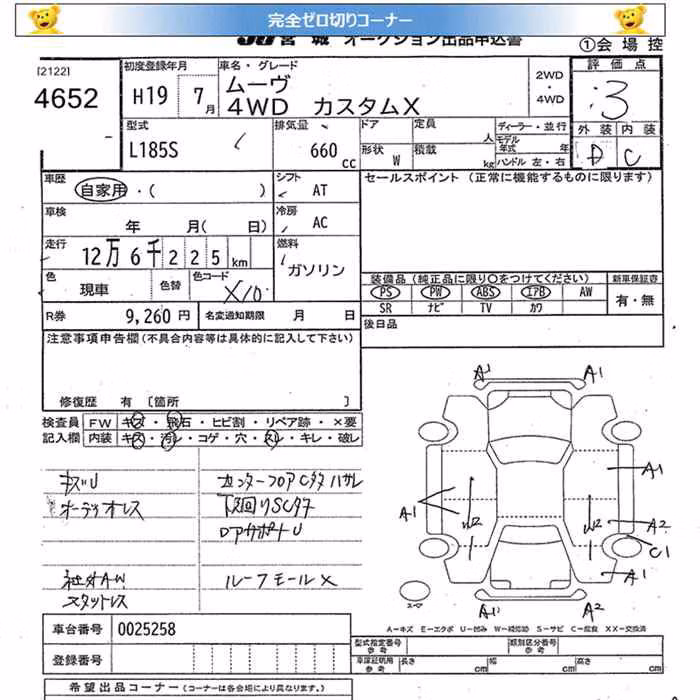 完全ゼロ切りコーナー
JU宮城 オークション出品申込書
①会場控
[2122]
4652
初度登録年月
H19 7月
車名・グレード
ムーヴ
4WD カスタムX
2WD
・
4WD
評価点
3
外装 内装
D C
型式
L185S
排気量
660 cc
ドア
形状 W
定員 人
積載 kg
ディーラー・並行
モデル年式 年
ハンドル 左・右
車歴
自家用・( )
シフト
AT
セールスポイント (正常に機能するものに限ります)
車検
年 月( 日)
冷房
AC
走行
12万6千225km
燃料
ガソリン
色
現車
色替
色コード
X10
装備品 (純正品に限り○をつけてください)
新車保証書
PS PW ABS エアB AW
有・無
SR ナビ TV カワ
R券 9,260円
名変通知期限 月 日
後日品
注意事項申告欄(不具合内容等は具体的に記入して下さい)
修復歴 有 [箇所 ]
検査員
記入欄
FW キズ・飛石・ヒビ割・リペア跡・×要
内装 キズ・汚レ・コゲ・穴・スレ・キレ・破レ
キズU
オーディオレス
社外AW
スタットレス
センターフロアCタタ ハサレ
下廻りSCタタ
ロアサポートU
ルーフモール×
A1 A1
A1
A1
W2
W2
A2
C1
A1
A1 A2
スペア
A-キズ E-エクボ U-凹み W-補修跡 S-サビ C-腐食 XX-交換済
車台番号 0025258
登録番号
型式指定番号
参考
類別区分番号
参考
車庫証明用
参考
長さ cm 幅 cm 高さ cm
希望出品コーナー (コーナーは各会場により異なります。)